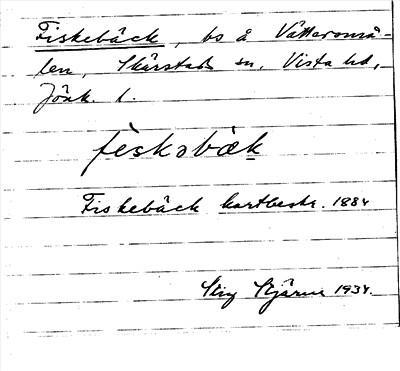 Fiskebäck, bs å Vätteromå-
len, Skärstads sn, Vista hd,
Jönk. l.
fiskəbäk
Fiskebäck kartbeskr. 1884
Stig Bjärne 1934.